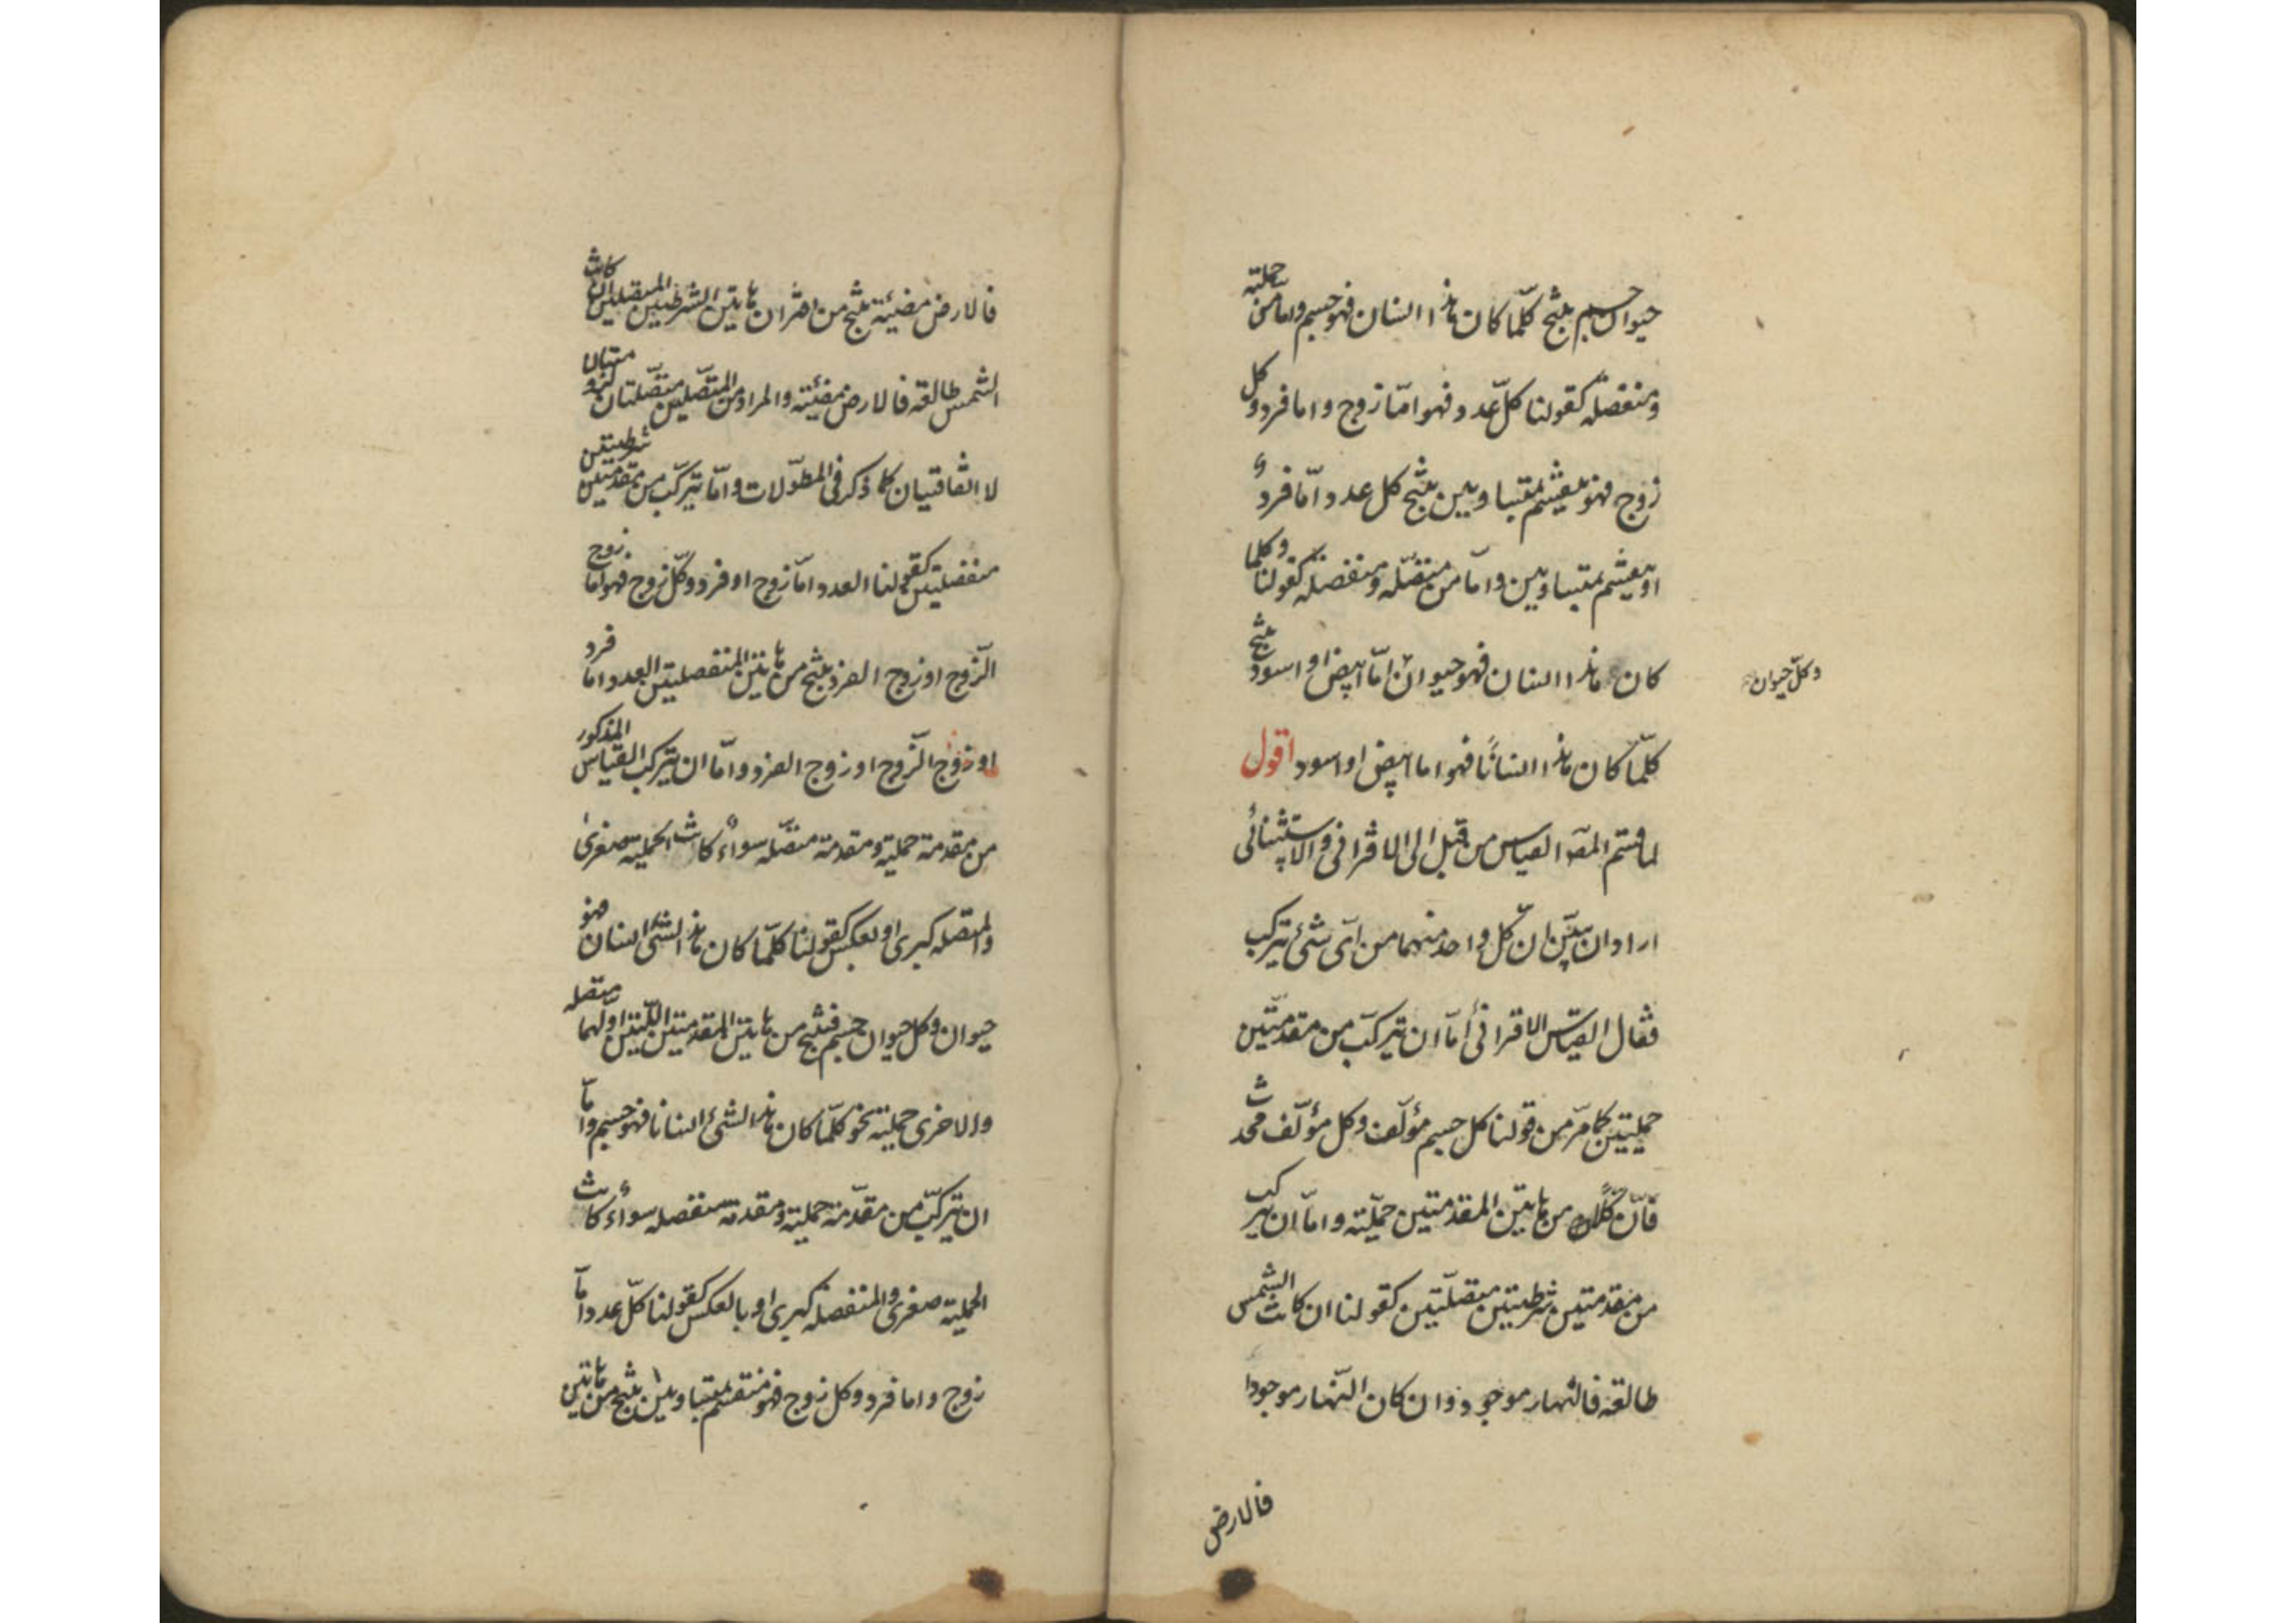 حيوان جسم ينتج كلّما كان هذا انسان فهو جسم واما من حملية
ومنفصلة كقولنا كلّ عدد فهو امّا زوج واما فرد وكل
زوج فهو منقسم بمتساويين ينتج كل عدد امّا فردٌ
او منقسم بمتساويين وامّا من متصّله ومنفصلة كقولنا وكلما
كان هذا انسان فهو حيوان امّا ابيض او اسود ينتج
وكلّ حيوان
كلّما كان هذا انسانًا فهو اما ابيض او اسود اقول
لما قسّم المصّ القياس من قبل الى الاقتراني والاستثنائى
اراد ان يبيّن ان كل واحد منهما من اىّ شئ يتركب
فقال القياس الاقترانىّ امّا ان يتركّب من مقدمّتين
حمليتين كما مرّ من قولنا كل جسم مؤلّف وكل مؤلّف محدث
فانّ كلّا من هاتين المقدمتين حمليّة وامّا ان يتركب
من مقدمتين شرطيتين متصّلتين كقولنا ان كانت الشمس
طالعة فالنهار موجود وان كان النّهار موجودا
فالارض
فالارض مضيئة ينتج من اقتران هاتين الشرطيتين المتصلتين ان كانت
الشمس طالعة فالارض مضيئة والمراد من المتصّلتين متصّلتان لزوميتان
لا اتفاقيتان كما ذكر فى المطوّلات وامّا يتركّب من مقدمتين شرطيتين
منفصلتين كقولنا العدد امّا زوج او فرد وكلّ زوج فهو اما زوج
الزّوج او زوج الفرد ينتج من هاتين المنفصلتين العدد اما فرد
او زوج الزّوج او زوج الفرد وامّا ان يتركب القياس المذكور
من مقدمة حملية ومقدمة متصّلة سواءٌ كانت الحملية صغرى
والمتصلة كبرى او بعكس كقولنا كلّما كان هذا الشئ انسان فهو
حيوان وكل حيوان جسم فينتج من هاتين المقدمتين اللّتين اوّلهما متصله
والاخرى حملية نحو كلّما كان هذا الشئ انسانا فهو جسم وامّا
ان يتركّب من مقدّمة حملية ومقدمة منفصله سواءٌ كانت
الحملية صغرى والمنفصلة كبرى او بالعكس كقولنا كلّ عدد امّا
زوج واما فرد وكل زوج فهو منقسم بمتساويين ينتج من هاتين